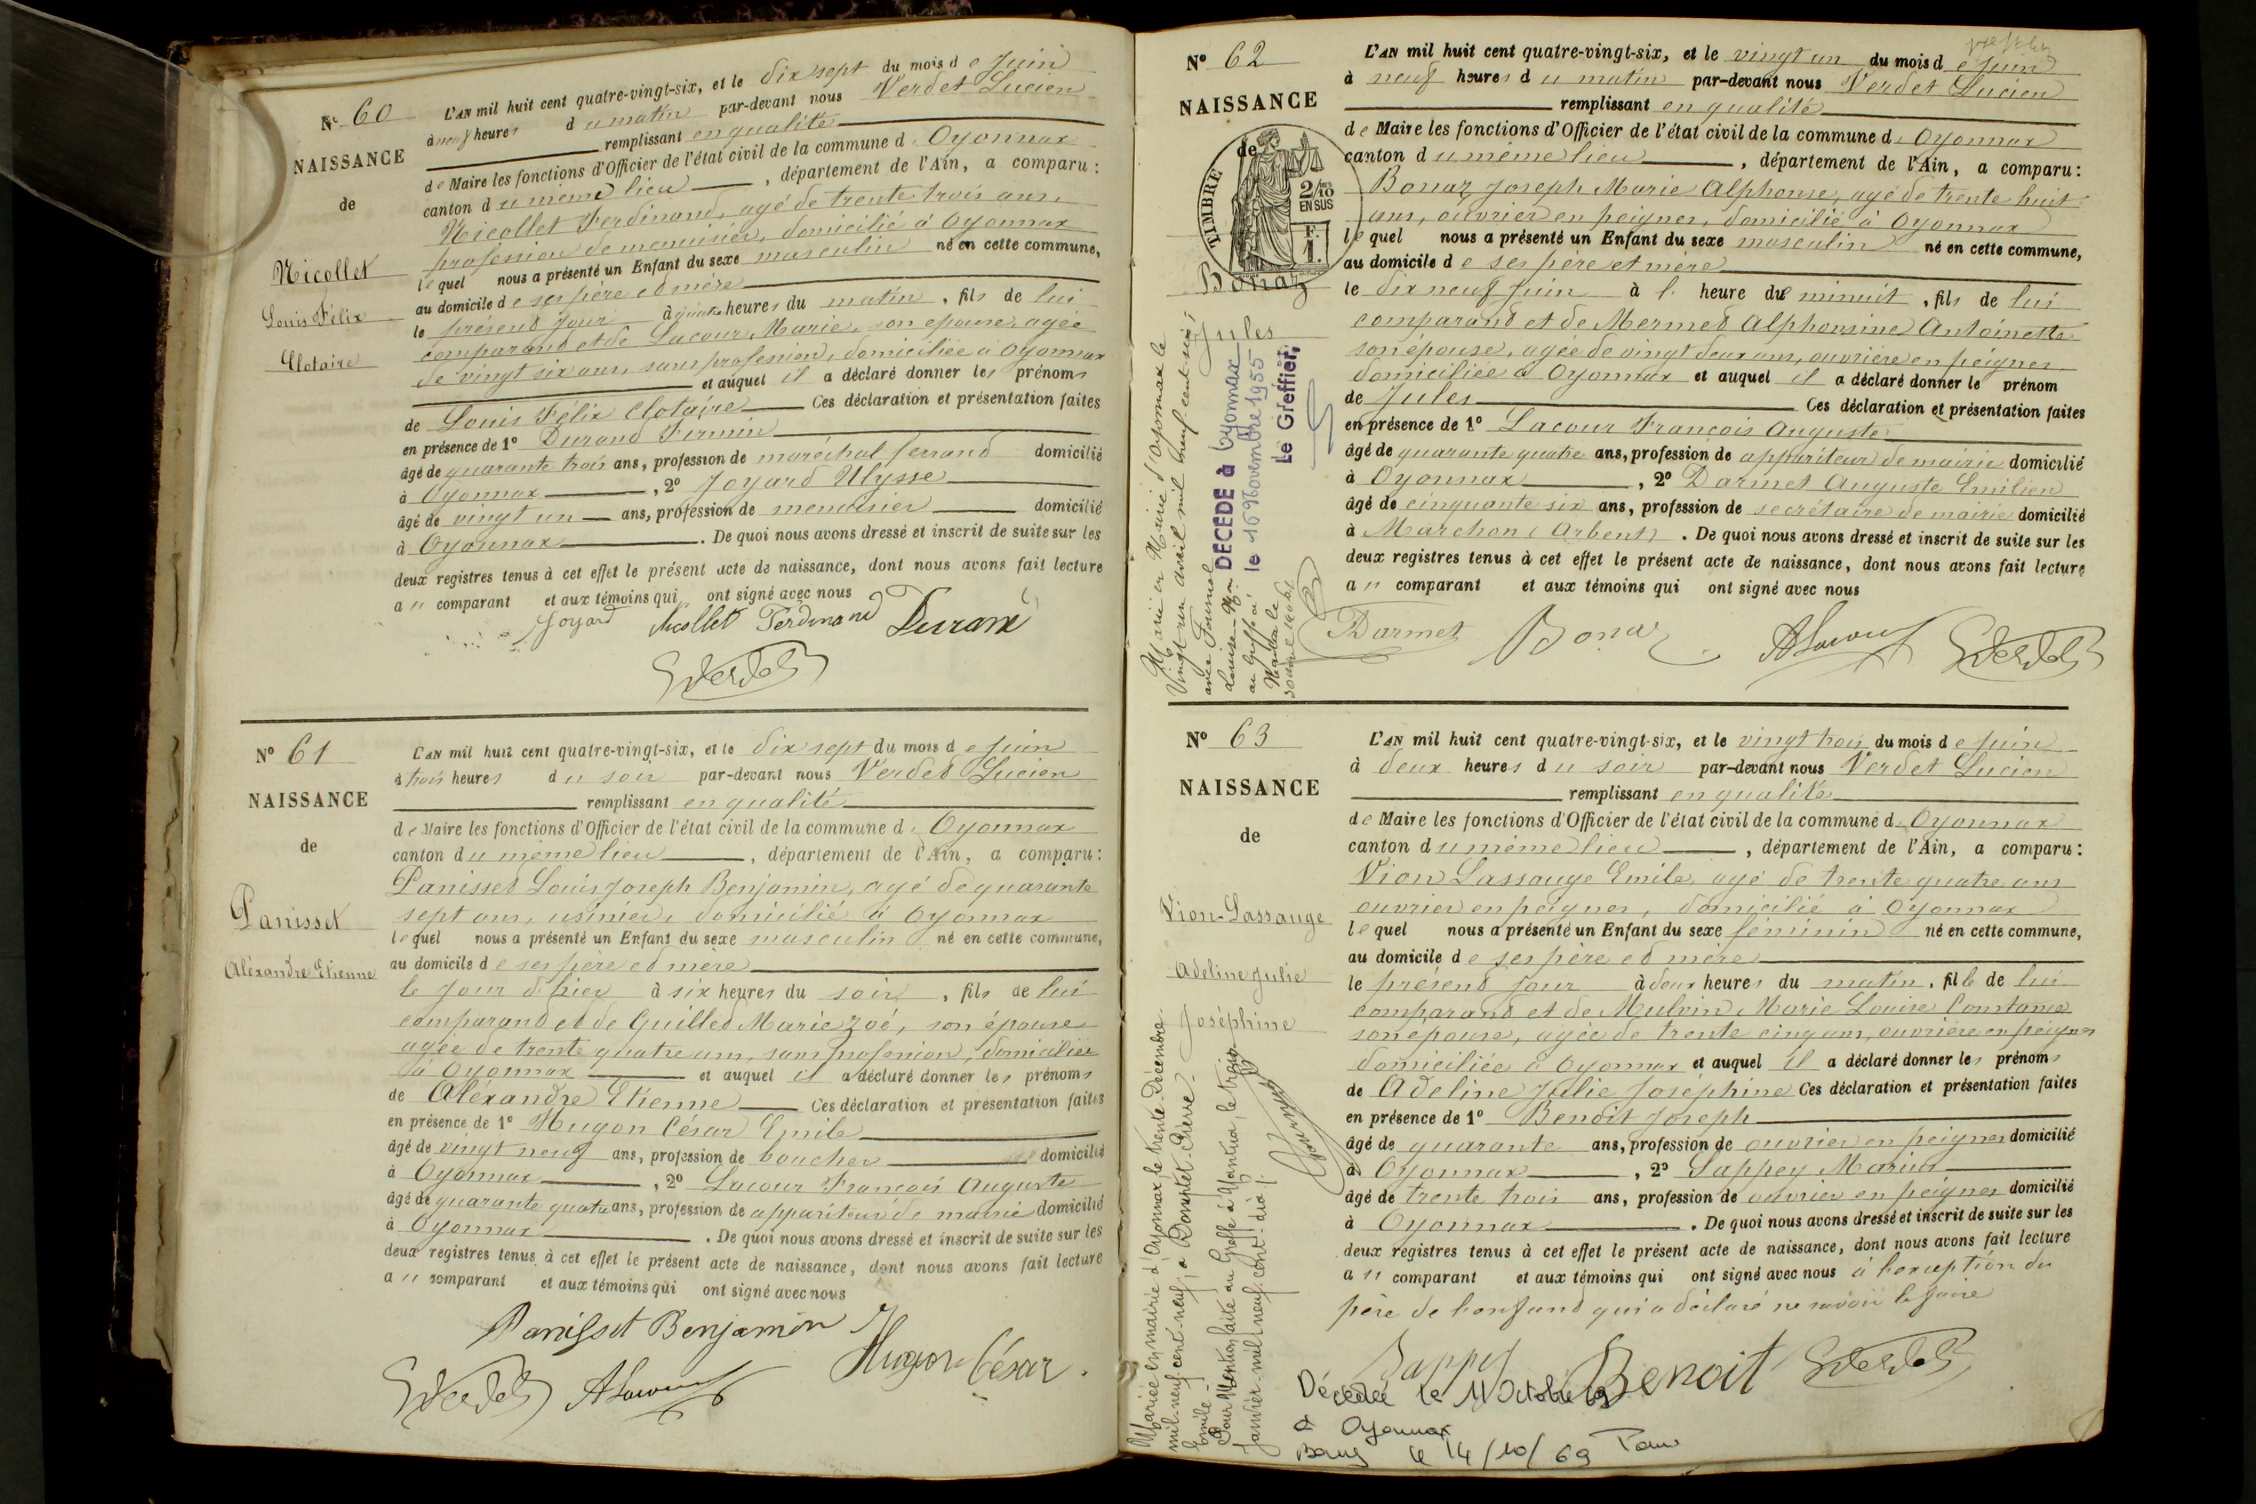 N° 60
NAISSANCE
de
Nicollet
Louis Félix
Clotaire
L'AN mil huit cent quatre-vingt-six, et le dix sept du mois de Juin
à neuf heures du matin par-devant nous Verdet Lucien
remplissant en qualité
de Maire les fonctions d'Officier de l'état civil de la commune d'Oyonnax
canton du même lieu, département de l'Ain, a comparu :
Nicollet Ferdinand, agé de trente trois ans,
profession de menuisier, domicilié à Oyonnax
lequel nous a présenté un Enfant du sexe masculin né en cette commune,
au domicile de ses père et mère
le présent jour à quatre heures du matin, fils de lui
comparant et de Lacour Marie, son épouse, agée
de vingt six ans, sans profession, domiciliée à Oyonnax
et auquel il a déclaré donner les prénoms
de Louis Félix Clotaire Ces déclaration et présentation faites
en présence de 1° Durand Firmin
âgé de quarante trois ans, profession de maréchal ferrand domicilié
à Oyonnax, 2° Joyard Ulysse
âgé de vingt un ans, profession de menuisier domicilié
à Oyonnax. De quoi nous avons dressé et inscrit de suite sur les
deux registres tenus à cet effet le présent acte de naissance, dont nous avons fait lecture
au comparant et aux témoins qui ont signé avec nous
Joyard Nicollet Ferdinand Durand
Verdet
N° 61
NAISSANCE
de
Panisset
Aléxandre Etienne
L'AN mil huit cent quatre-vingt-six, et le dix sept du mois de Juin
à trois heures du soir par-devant nous Verdet Lucien
remplissant en qualité
de Maire les fonctions d'Officier de l'état civil de la commune d'Oyonnax
canton du même lieu, département de l'Ain, a comparu :
Panisset Louis Joseph Benjamin, agé de quarante
sept ans, usinier, domicilié à Oyonnax
lequel nous a présenté un Enfant du sexe masculin né en cette commune,
au domicile de ses père et mère
le jour d'hier à six heures du soir, fils de lui
comparant et de Guillet Marie Zoé, son épouse
agée de trente quatre ans, sans profession, domiciliée
à Oyonnax et auquel il a déclaré donner les prénoms
de Aléxandre Etienne Ces déclaration et présentation faites
en présence de 1° Hugon César Emile
âgé de vingt neuf ans, profession de boucher domicilié
à Oyonnax, 2° Lacour François Auguste
âgé de quarante quatre ans, profession de appariteur de mairie domicilié
à Oyonnax. De quoi nous avons dressé et inscrit de suite sur les
deux registres tenus à cet effet le présent acte de naissance, dont nous avons fait lecture
au comparant et aux témoins qui ont signé avec nous
Panisset Benjamin
Hugon César
Verdet ALacour
N° 62
NAISSANCE
de
TIMBRE
2/10 EN SUS
F. 1.
Bonaz
Jules
Marié en Mairie d'Oyonnax le
Vingt-un avril mil neuf cent-six
avec Fournel
DECEDE à Oyonnax
le 16 Novembre 1955
Le Greffier,
L'AN mil huit cent quatre-vingt-six, et le vingt un du mois de Juin
à neuf heures du matin par-devant nous Verdet Lucien
remplissant en qualité
de Maire les fonctions d'Officier de l'état civil de la commune d'Oyonnax
canton du même lieu, département de l'Ain, a comparu :
Bonaz Joseph Marie Alphonse, agé de trente huit
ans, ouvrier en peignes, domicilié à Oyonnax
lequel nous a présenté un Enfant du sexe masculin né en cette commune,
au domicile de ses père et mère
le dix neuf Juin à l' heure de minuit, fils de lui
comparant et de Mermet Alphonsine Antoinette
son épouse, agée de vingt deux ans, ouvrière en peignes
domiciliée à Oyonnax et auquel il a déclaré donner le prénom
de Jules Ces déclaration et présentation faites
en présence de 1° Lacour François Auguste
âgé de quarante quatre ans, profession de appariteur de mairie domicilié
à Oyonnax, 2° Darmet Auguste Emilien
âgé de cinquante six ans, profession de secrétaire de mairie domicilié
à Marchon (Arbent). De quoi nous avons dressé et inscrit de suite sur les
deux registres tenus à cet effet le présent acte de naissance, dont nous avons fait lecture
au comparant et aux témoins qui ont signé avec nous
Darmet Bonaz ALacour Verdet
N° 63
NAISSANCE
de
Vion-Lassauge
Adeline Julie
Joséphine
Mariée en mairie d'Oyonnax le trente Décembre
mil-neuf-cent-neuf, à Donplet-Pierre-
Emile-
Pour Mention faite au Greffe à Nantua, le treize
Janvier mil-neuf-cent-dix /.
L'AN mil huit cent quatre-vingt-six, et le vingt trois du mois de Juin
à deux heures du soir par-devant nous Verdet Lucien
remplissant en qualité
de Maire les fonctions d'Officier de l'état civil de la commune d'Oyonnax
canton du même lieu, département de l'Ain, a comparu :
Vion Lassauge Emile, agé de trente quatre ans
ouvrier en peignes, domicilié à Oyonnax
lequel nous a présenté un Enfant du sexe féminin né en cette commune,
au domicile de ses père et mère
le présent jour à deux heures du matin, fille de lui
comparant et de Mulvin Marie Louise Constance
son épouse, agée de trente cinq ans, ouvrière en peignes
domiciliée à Oyonnax et auquel il a déclaré donner les prénoms
de Adeline Julie Joséphine Ces déclaration et présentation faites
en présence de 1° Benoit Joseph
âgé de quarante ans, profession de ouvrier en peignes domicilié
à Oyonnax, 2° Sappey Marius
âgé de trente trois ans, profession de ouvrier en peignes domicilié
à Oyonnax. De quoi nous avons dressé et inscrit de suite sur les
deux registres tenus à cet effet le présent acte de naissance, dont nous avons fait lecture
au comparant et aux témoins qui ont signé avec nous à l'exception du
père de l'enfant qui a déclaré ne savoir le faire
Sappey Benoit Verdet
Décédée le 11 Octobre 69
à Oyonnax
Bourg le 14/10/69